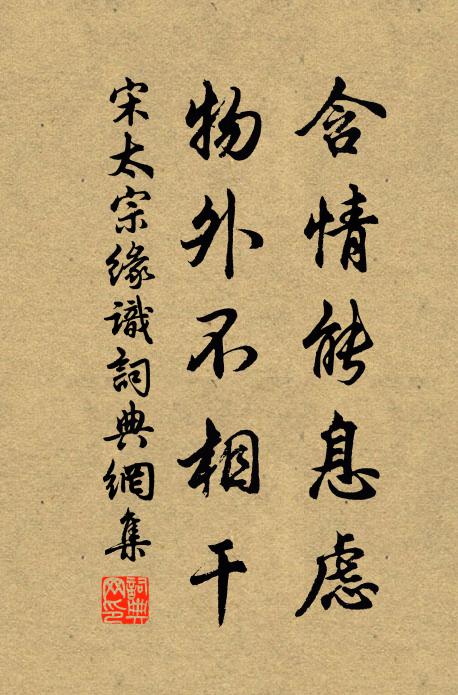 含情能息慮
物外不相干
宋太宗緣識詞典網集
詞典網印